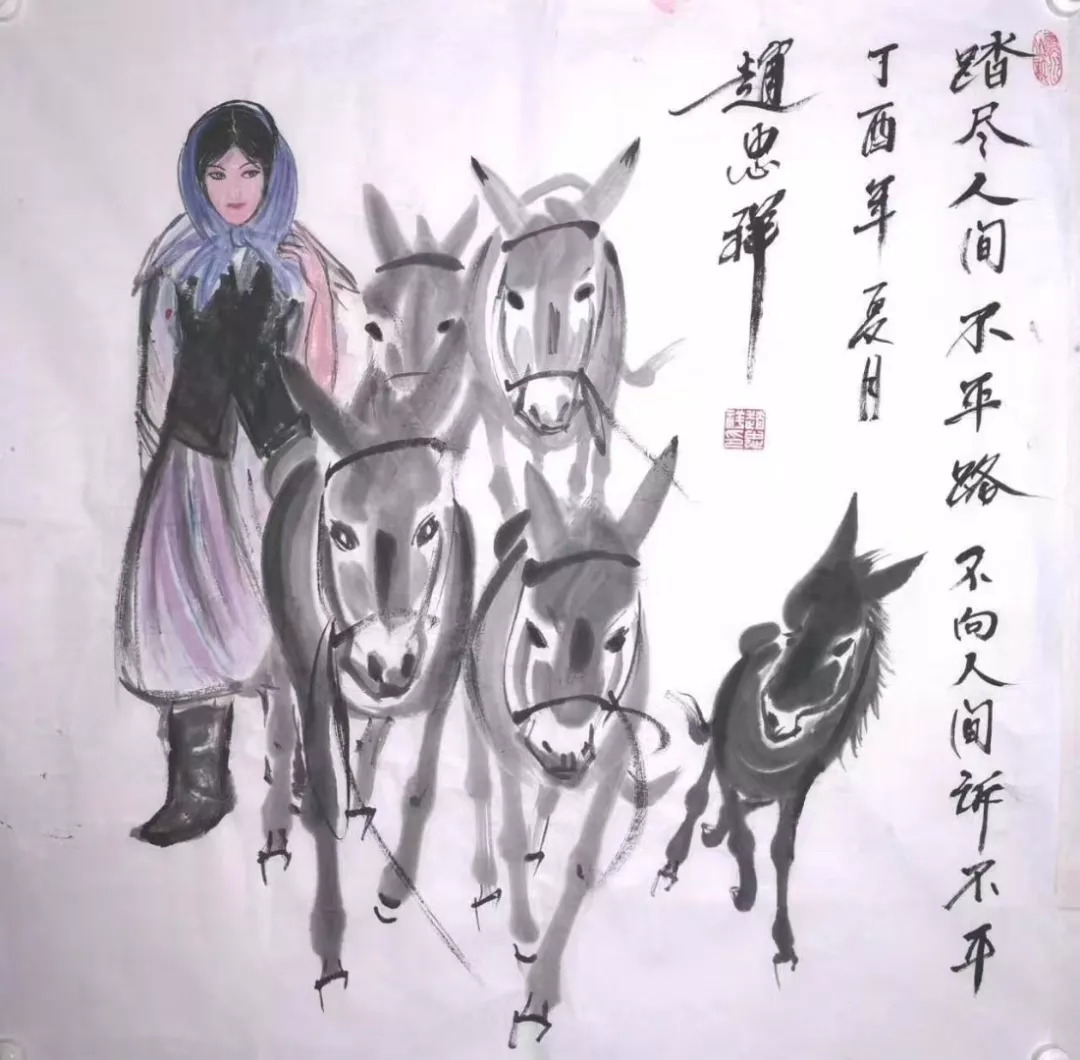 踏尽人间不平路不向人间诉不平
丁酉年夏月
趙忠祥